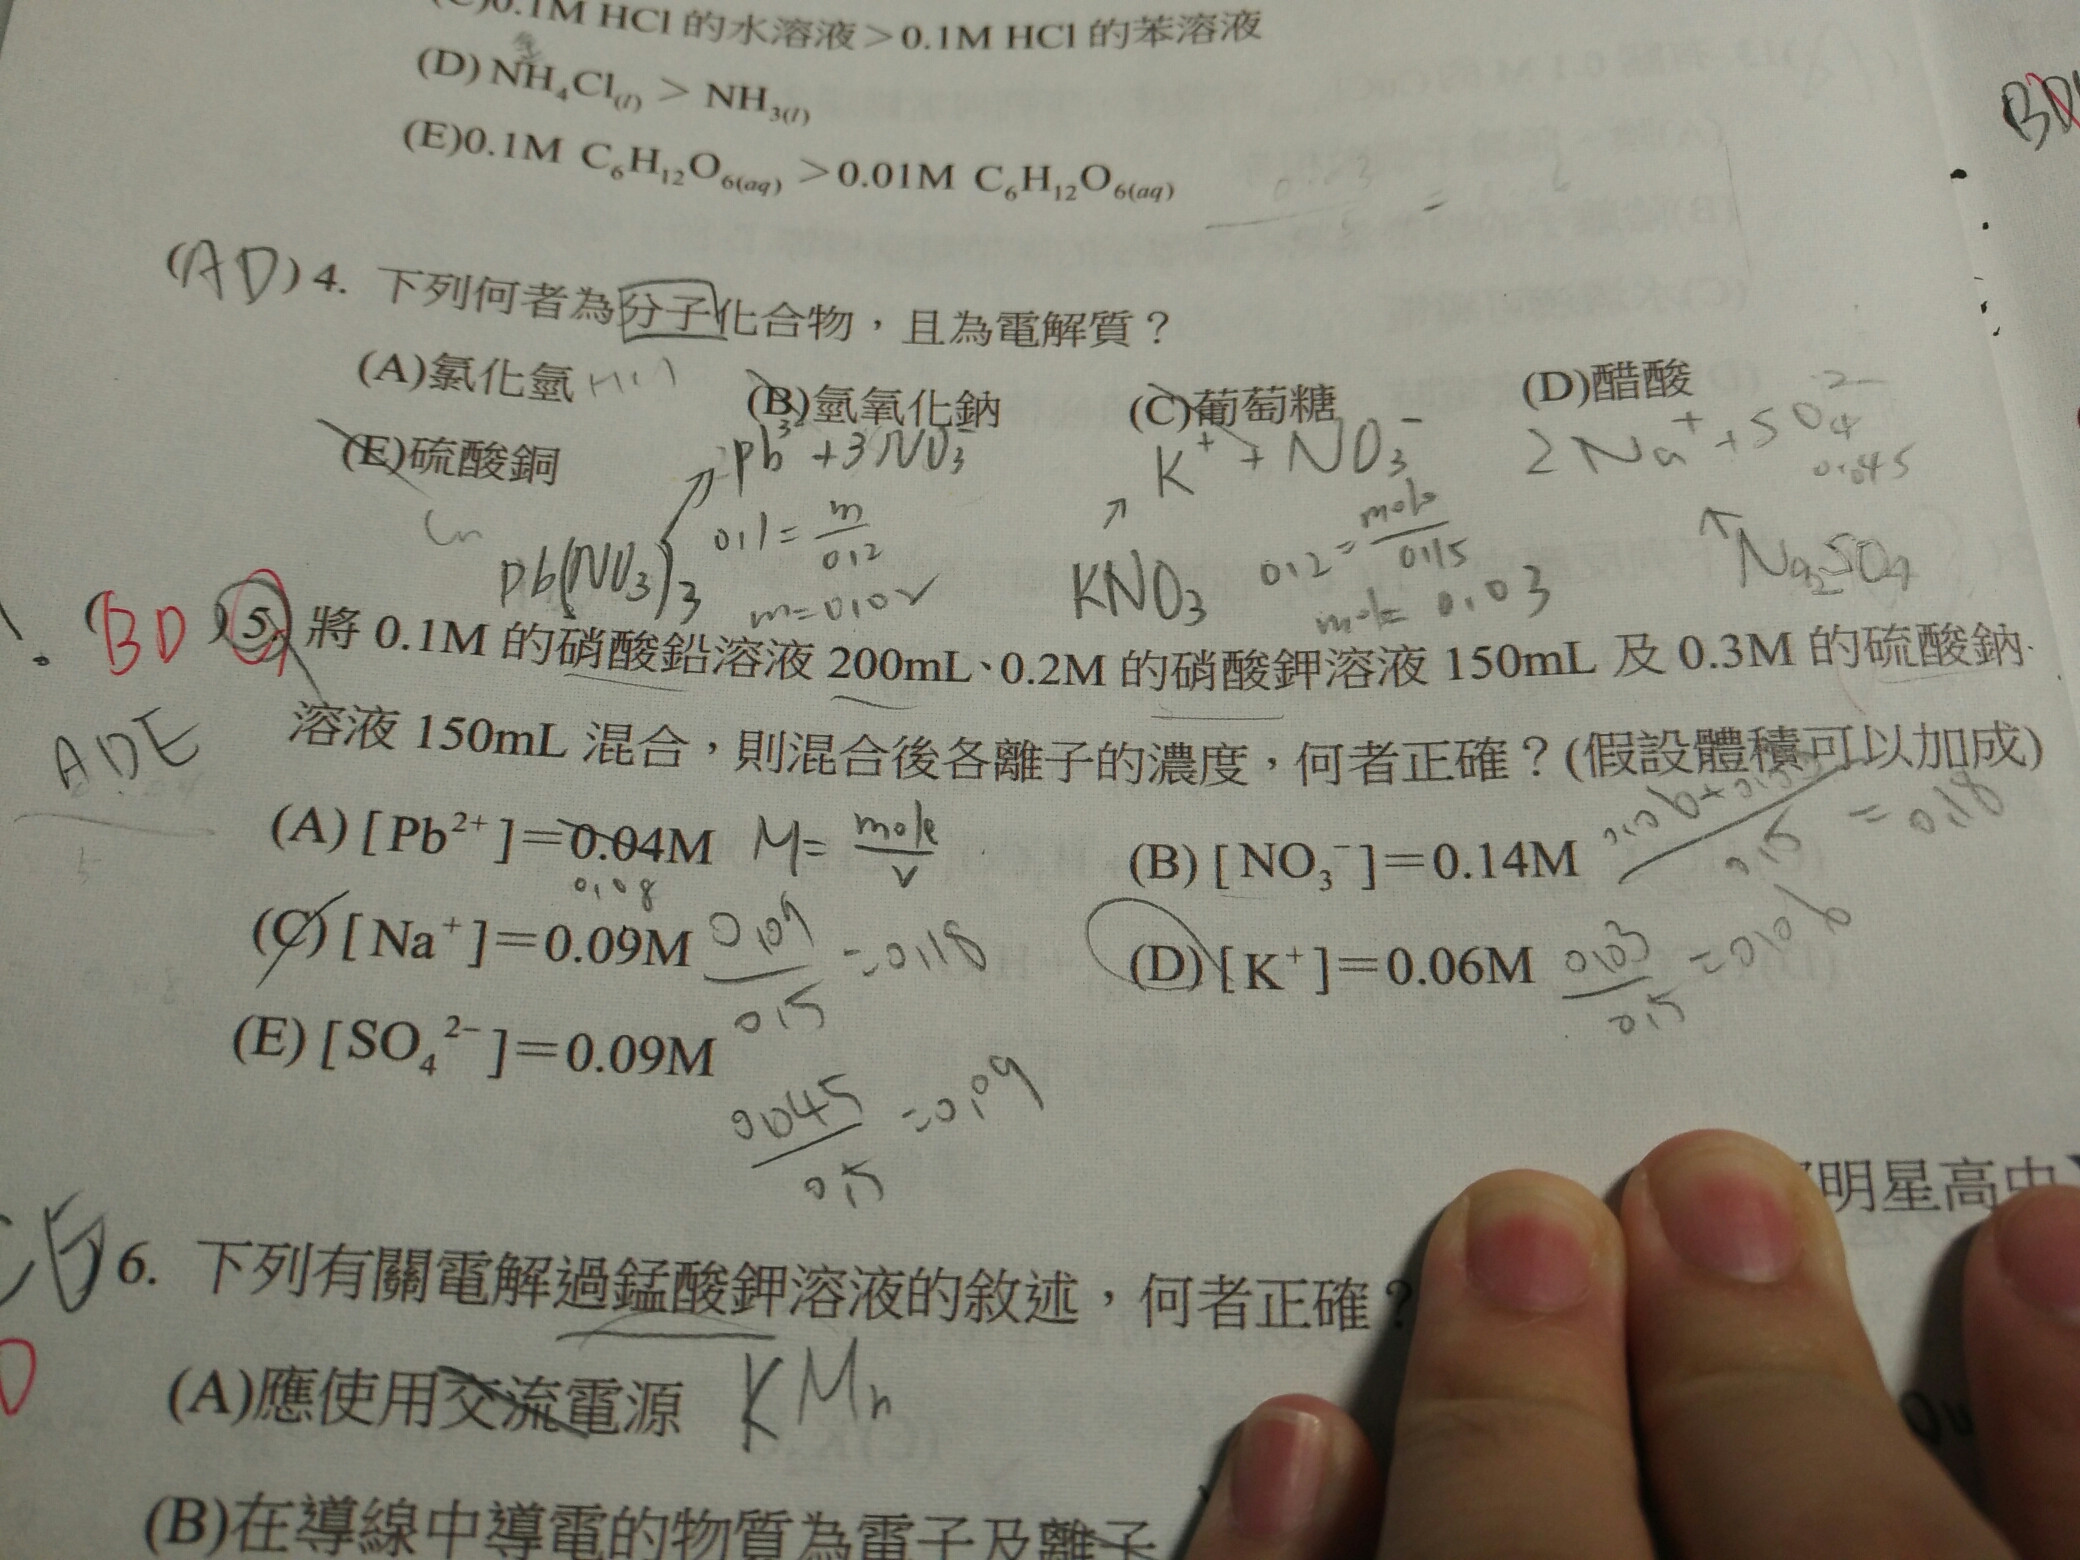 (C)0.1M HCl 的水溶液＞0.1M HCl 的苯溶液
(D) NH₄Cl₍l₎ ＞ NH₃₍l₎
(E)0.1M C₆H₁₂O₆(aq) ＞0.01M C₆H₁₂O₆(aq)
BD
(AD) 4. 下列何者為分子化合物，且為電解質？
(A)氯化氫 HCl (B)氫氧化鈉 (C)葡萄糖 (D)醋酸
(E)硫酸銅
Pb³⁺+3NO₃⁻ K⁺+NO₃⁻ 2Na⁺+SO₄²⁻
0.045
Cu
Pb(NO₃)₃ 0.1=m/0.2 KNO₃ 0.2=mole/0.15 Na₂SO₄
m=0.02 mole=0.03
(BD) 5. 將 0.1M 的硝酸鉛溶液 200mL、0.2M 的硝酸鉀溶液 150mL 及 0.3M 的硫酸鈉
溶液 150mL 混合，則混合後各離子的濃度，何者正確？(假設體積可以加成)
ADE
(A) [Pb²⁺]＝0.04M M=mole/V (B) [NO₃⁻]＝0.14M =0.18
0.08
(C) [Na⁺]＝0.09M 0.09/0.5=0.18 (D) [K⁺]＝0.06M 0.03/0.5=0.06
(E) [SO₄²⁻]＝0.09M
0.045/0.5=0.09
明星高中
6. 下列有關電解過錳酸鉀溶液的敘述，何者正確？
(A)應使用交流電源 KMn
(B)在導線中導電的物質為電子及離子